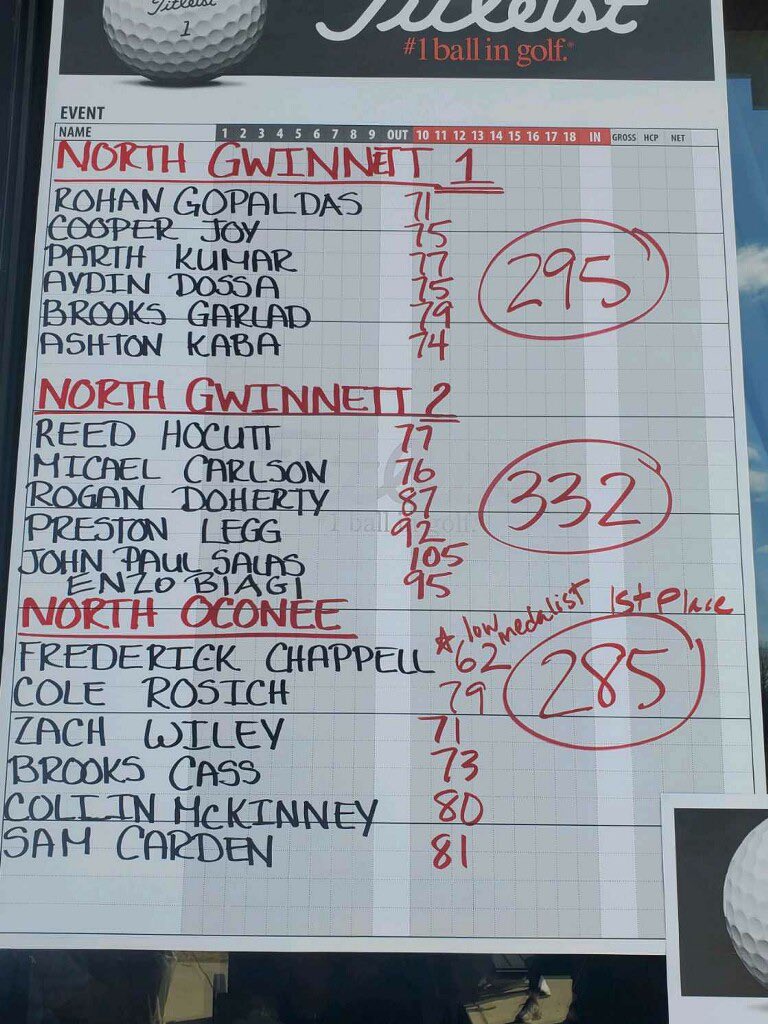 Titleist
1
Titleist
#1 ball in golf.®
EVENT
NAME 1 2 3 4 5 6 7 8 9 OUT 10 11 12 13 14 15 16 17 18 IN GROSS HCP NET
NORTH GWINNETT 1
ROHAN GOPALDAS 71
COOPER JOY 75
PARTH KUMAR 77
AYDIN DOSSA 75
BROOKS GARLAD 79
ASHTON KABA 74
295
NORTH GWINNETT 2
REED HOCUTT 77
MICAEL CARLSON 76
ROGAN DOHERTY 87
PRESTON LEGG 92
JOHN PAUL SALAS 105
ENZO BIAGI 95
332
#1 ball in golf.
NORTH OCONEE
* low medalist 1st Place
FREDERICK CHAPPELL 62
COLE ROSICH 79
ZACH WILEY 71
BROOKS CASS 73
COLLIN MCKINNEY 80
SAM CARDEN 81
285